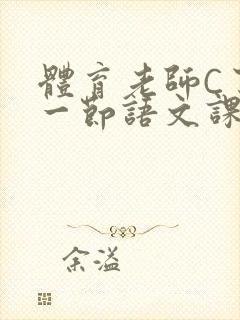 體育老師C
一節語文課
余溢